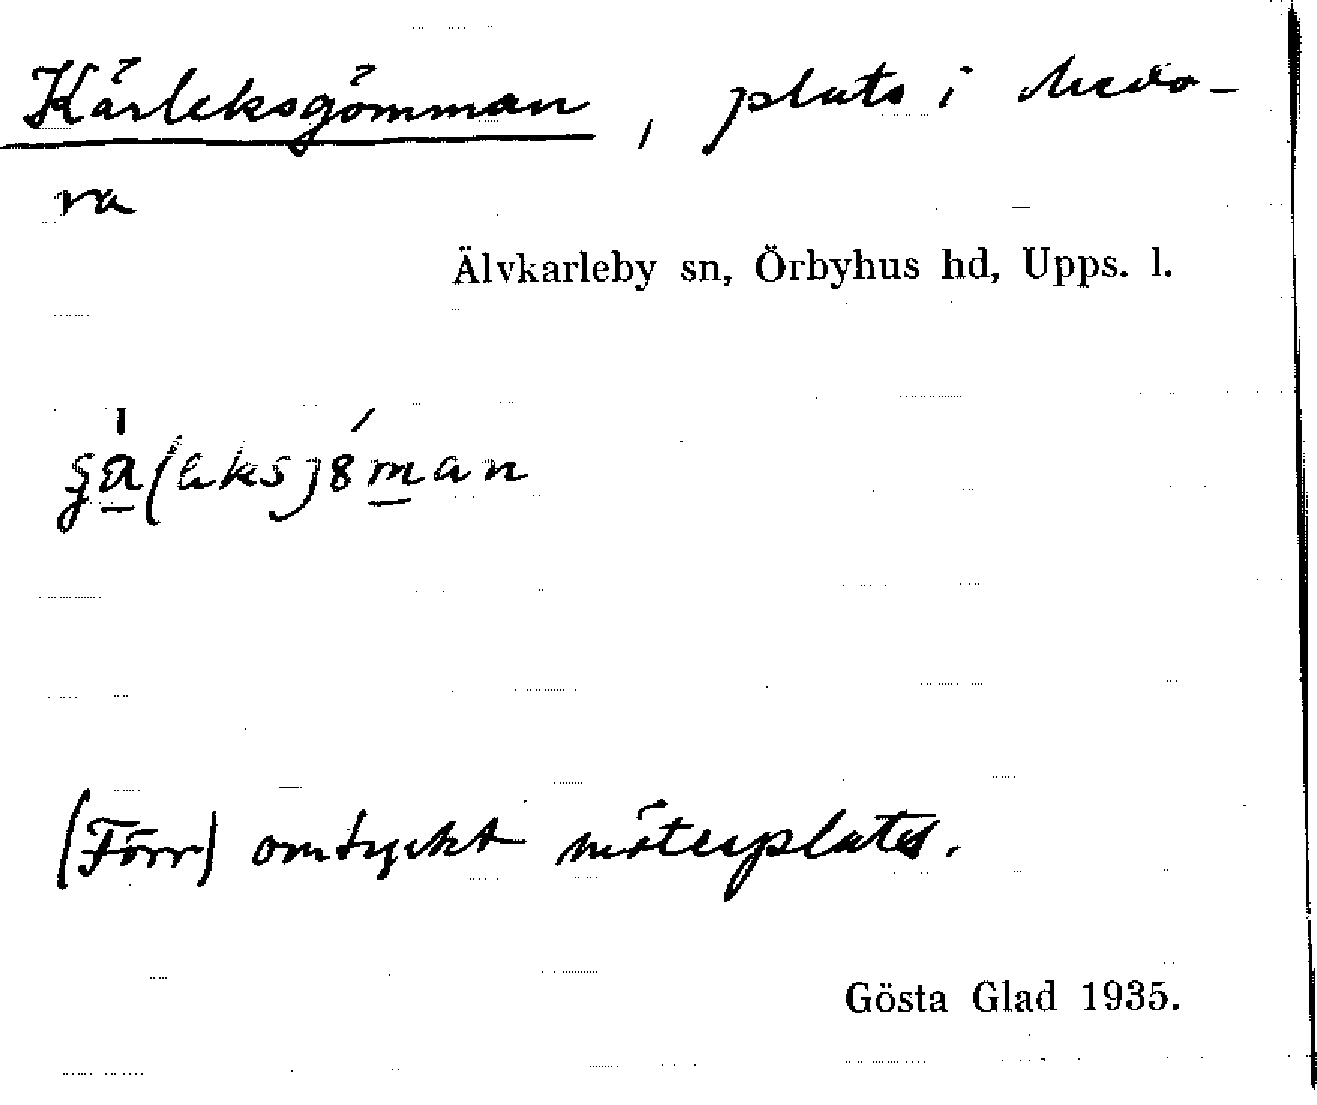 Kärleksgömman, plats i Medo-
ra
Älvkarleby sn, Örbyhus hd, Upps. l.
(Förr) omtyckt mötesplats.
Gösta Glad 1935.